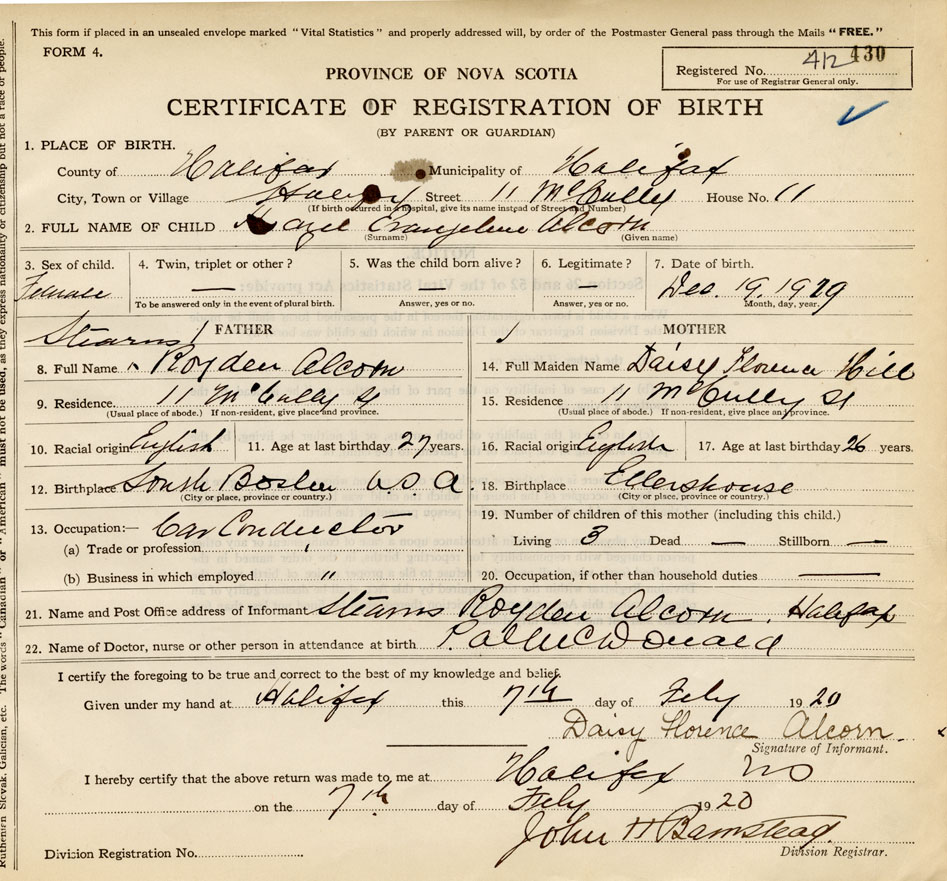 This form if placed in an unsealed envelope marked "Vital Statistics" and properly addressed will, by order of the Postmaster General pass through the Mails "FREE."
FORM 4.
Registered No. 412 430
For use of Registrar General only.
PROVINCE OF NOVA SCOTIA
CERTIFICATE OF REGISTRATION OF BIRTH
(BY PARENT OR GUARDIAN)
1. PLACE OF BIRTH.
County of Halifax Municipality of Halifax
City, Town or Village Halifax Street 11 McCully House No. 11
(If birth occurred in a hospital, give its name instead of Street and Number)
2. FULL NAME OF CHILD Evangeline Alcorn
(Surname) (Given name)
3. Sex of child. 4. Twin, triplet or other? 5. Was the child born alive? 6. Legitimate? 7. Date of birth.
Female — — Dec. 19, 1929
To be answered only in the event of plural birth. Answer, yes or no. Answer, yes or no. Month, day, year.
FATHER MOTHER
Stearns
8. Full Name Royden Alcorn 14. Full Maiden Name Daisy Florence Hill
9. Residence. 11 McCully St 15. Residence 11 McCully St
(Usual place of abode.) If non-resident, give place and province. (Usual place of abode.) If non-resident, give place and province.
10. Racial origin English 11. Age at last birthday 27 years. 16. Racial origin English 17. Age at last birthday 26 years.
12. Birthplace South Boston U.S.A. 18. Birthplace Ellershouse
(City or place, province or country.) (City or place, province or country.)
13. Occupation:— Car Conductor 19. Number of children of this mother (including this child.)
(a) Trade or profession Living 3 Dead — Stillborn —
(b) Business in which employed " 20. Occupation, if other than household duties —
21. Name and Post Office address of Informant Stearns Royden Alcorn. Halifax
22. Name of Doctor, nurse or other person in attendance at birth McDonald
I certify the foregoing to be true and correct to the best of my knowledge and belief.
Given under my hand at Halifax this 7th day of Feby 1920
Daisy Florence Alcorn.
Signature of Informant.
I hereby certify that the above return was made to me at Halifax NS
on the 7th day of Feby 1920
John H Barnstead
Division Registration No. Division Registrar.
Ruthenien Slovak, Galician, etc. The words "Canadian" or "American" must not be used, as they express nationality or citizenship but not a race or people.